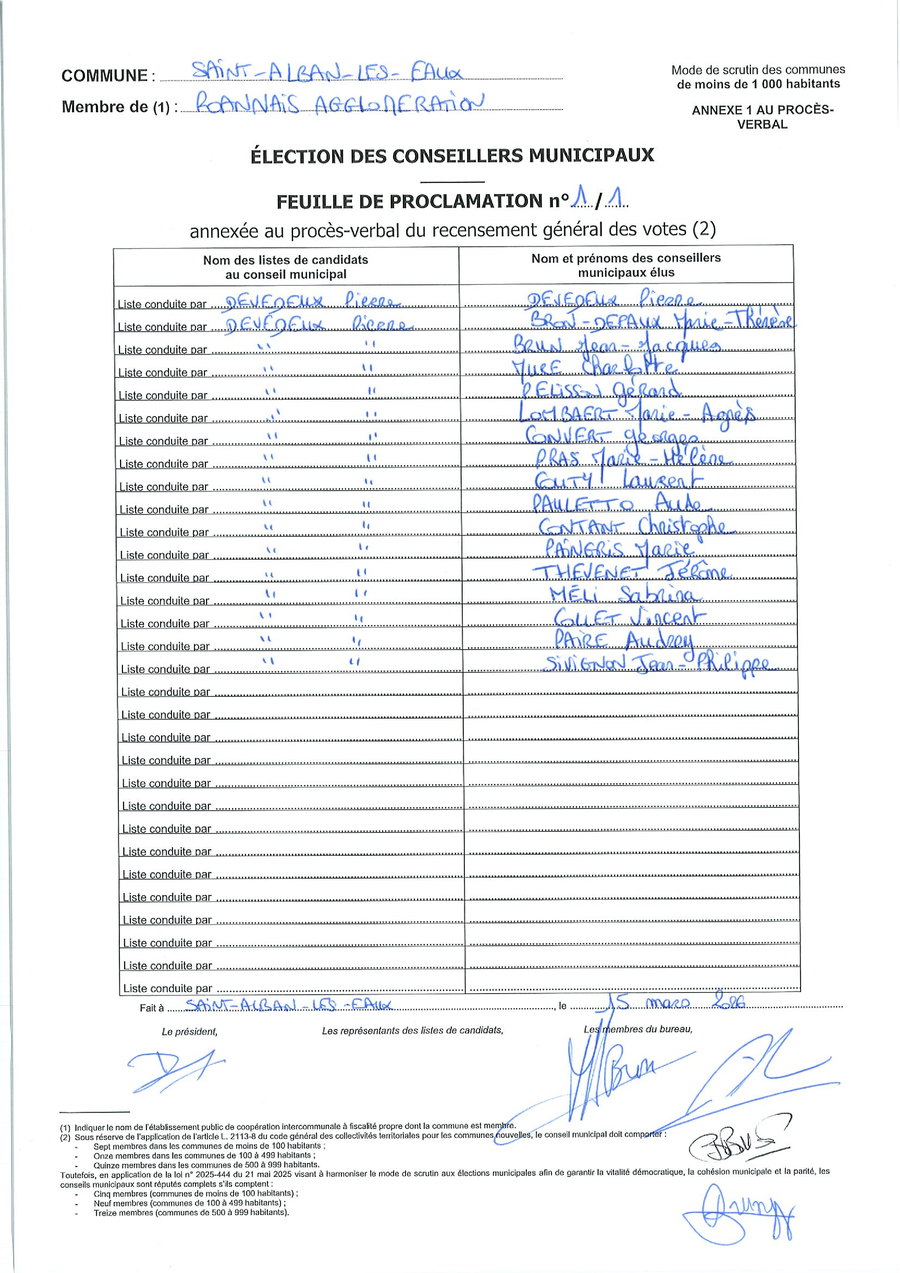 COMMUNE : SAINT-ALBAN-LES-EAUX
Membre de (1) : ROANNAIS AGGLOMERATION
Mode de scrutin des communes
de moins de 1 000 habitants
ANNEXE 1 AU PROCÈS-
VERBAL
ÉLECTION DES CONSEILLERS MUNICIPAUX
FEUILLE DE PROCLAMATION n° 1 / 1
annexée au procès-verbal du recensement général des votes (2)
Nom des listes de candidats
au conseil municipal
Nom et prénoms des conseillers
municipaux élus
Liste conduite par DEVEDEUX Pierre DEVEDEUX Pierre
Liste conduite par DEVEDEUX Pierre BRON-DEPAUX Marie-Thérèse
Liste conduite par " " BRUN Jean-Jacques
Liste conduite par " " MURE Charlotte
Liste conduite par " " PELISSON Gérard
Liste conduite par " " LOMBAERT Marie-Agnès
Liste conduite par " " CONVERT Georges
Liste conduite par " " PRAS Marie-Hélène
Liste conduite par " " GUTY Laurent
Liste conduite par " " PAULETTO Aude
Liste conduite par " " CONTANT Christophe
Liste conduite par " " PAINGRIS Marie
Liste conduite par " " THEVENET Jérôme
Liste conduite par " " MÉLI Sabrina
Liste conduite par " " COLLET Vincent
Liste conduite par " " PAIRE Audrey
Liste conduite par " " SIVIGNON Jean-Philippe
Liste conduite par
Liste conduite par
Liste conduite par
Liste conduite par
Liste conduite par
Liste conduite par
Liste conduite par
Liste conduite par
Liste conduite par
Liste conduite par
Liste conduite par
Liste conduite par
Liste conduite par
Liste conduite par
Fait à SAINT-ALBAN-LES-EAUX, le 15 mars 2026
Le président,
Les représentants des listes de candidats,
Les membres du bureau,
Brun
(1) Indiquer le nom de l'établissement public de coopération intercommunale à fiscalité propre dont la commune est membre.
(2) Sous réserve de l'application de l'article L. 2113-8 du code général des collectivités territoriales pour les communes nouvelles, le conseil municipal doit comporter :
- Sept membres dans les communes de moins de 100 habitants ;
- Onze membres dans les communes de 100 à 499 habitants ;
- Quinze membres dans les communes de 500 à 999 habitants.
Toutefois, en application de la loi n° 2025-444 du 21 mai 2025 visant à harmoniser le mode de scrutin aux élections municipales afin de garantir la vitalité démocratique, la cohésion municipale et la parité, les
conseils municipaux sont réputés complets s'ils comptent :
- Cinq membres (communes de moins de 100 habitants) ;
- Neuf membres (communes de 100 à 499 habitants) ;
- Treize membres (communes de 500 à 999 habitants).